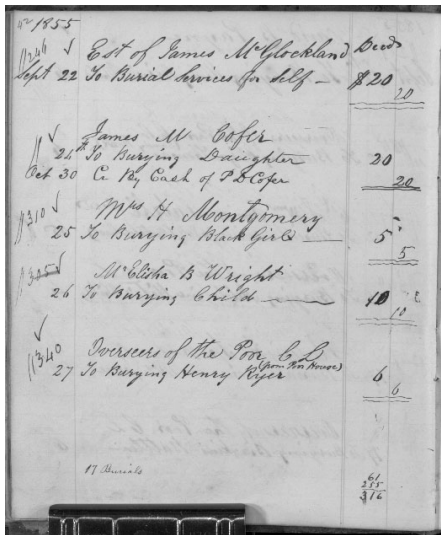 1855
Est of James McGlockland Deed
Sept 22 To Burial Services for Self — $20
20
James M Cofer
24 To Burying Daughter 20
Oct 30 Cr By Cash of P D Cofer
20
310 Mrs H Montgomery
25 To Burying Black Girl — 5
5
305 Mr Elisha B Wright
26 To Burying Child — 10
10
340 Overseers of the Poor C L
27 To Burying Henry Ryer (from Poor House) 6
6
17 Burials
61
255
316